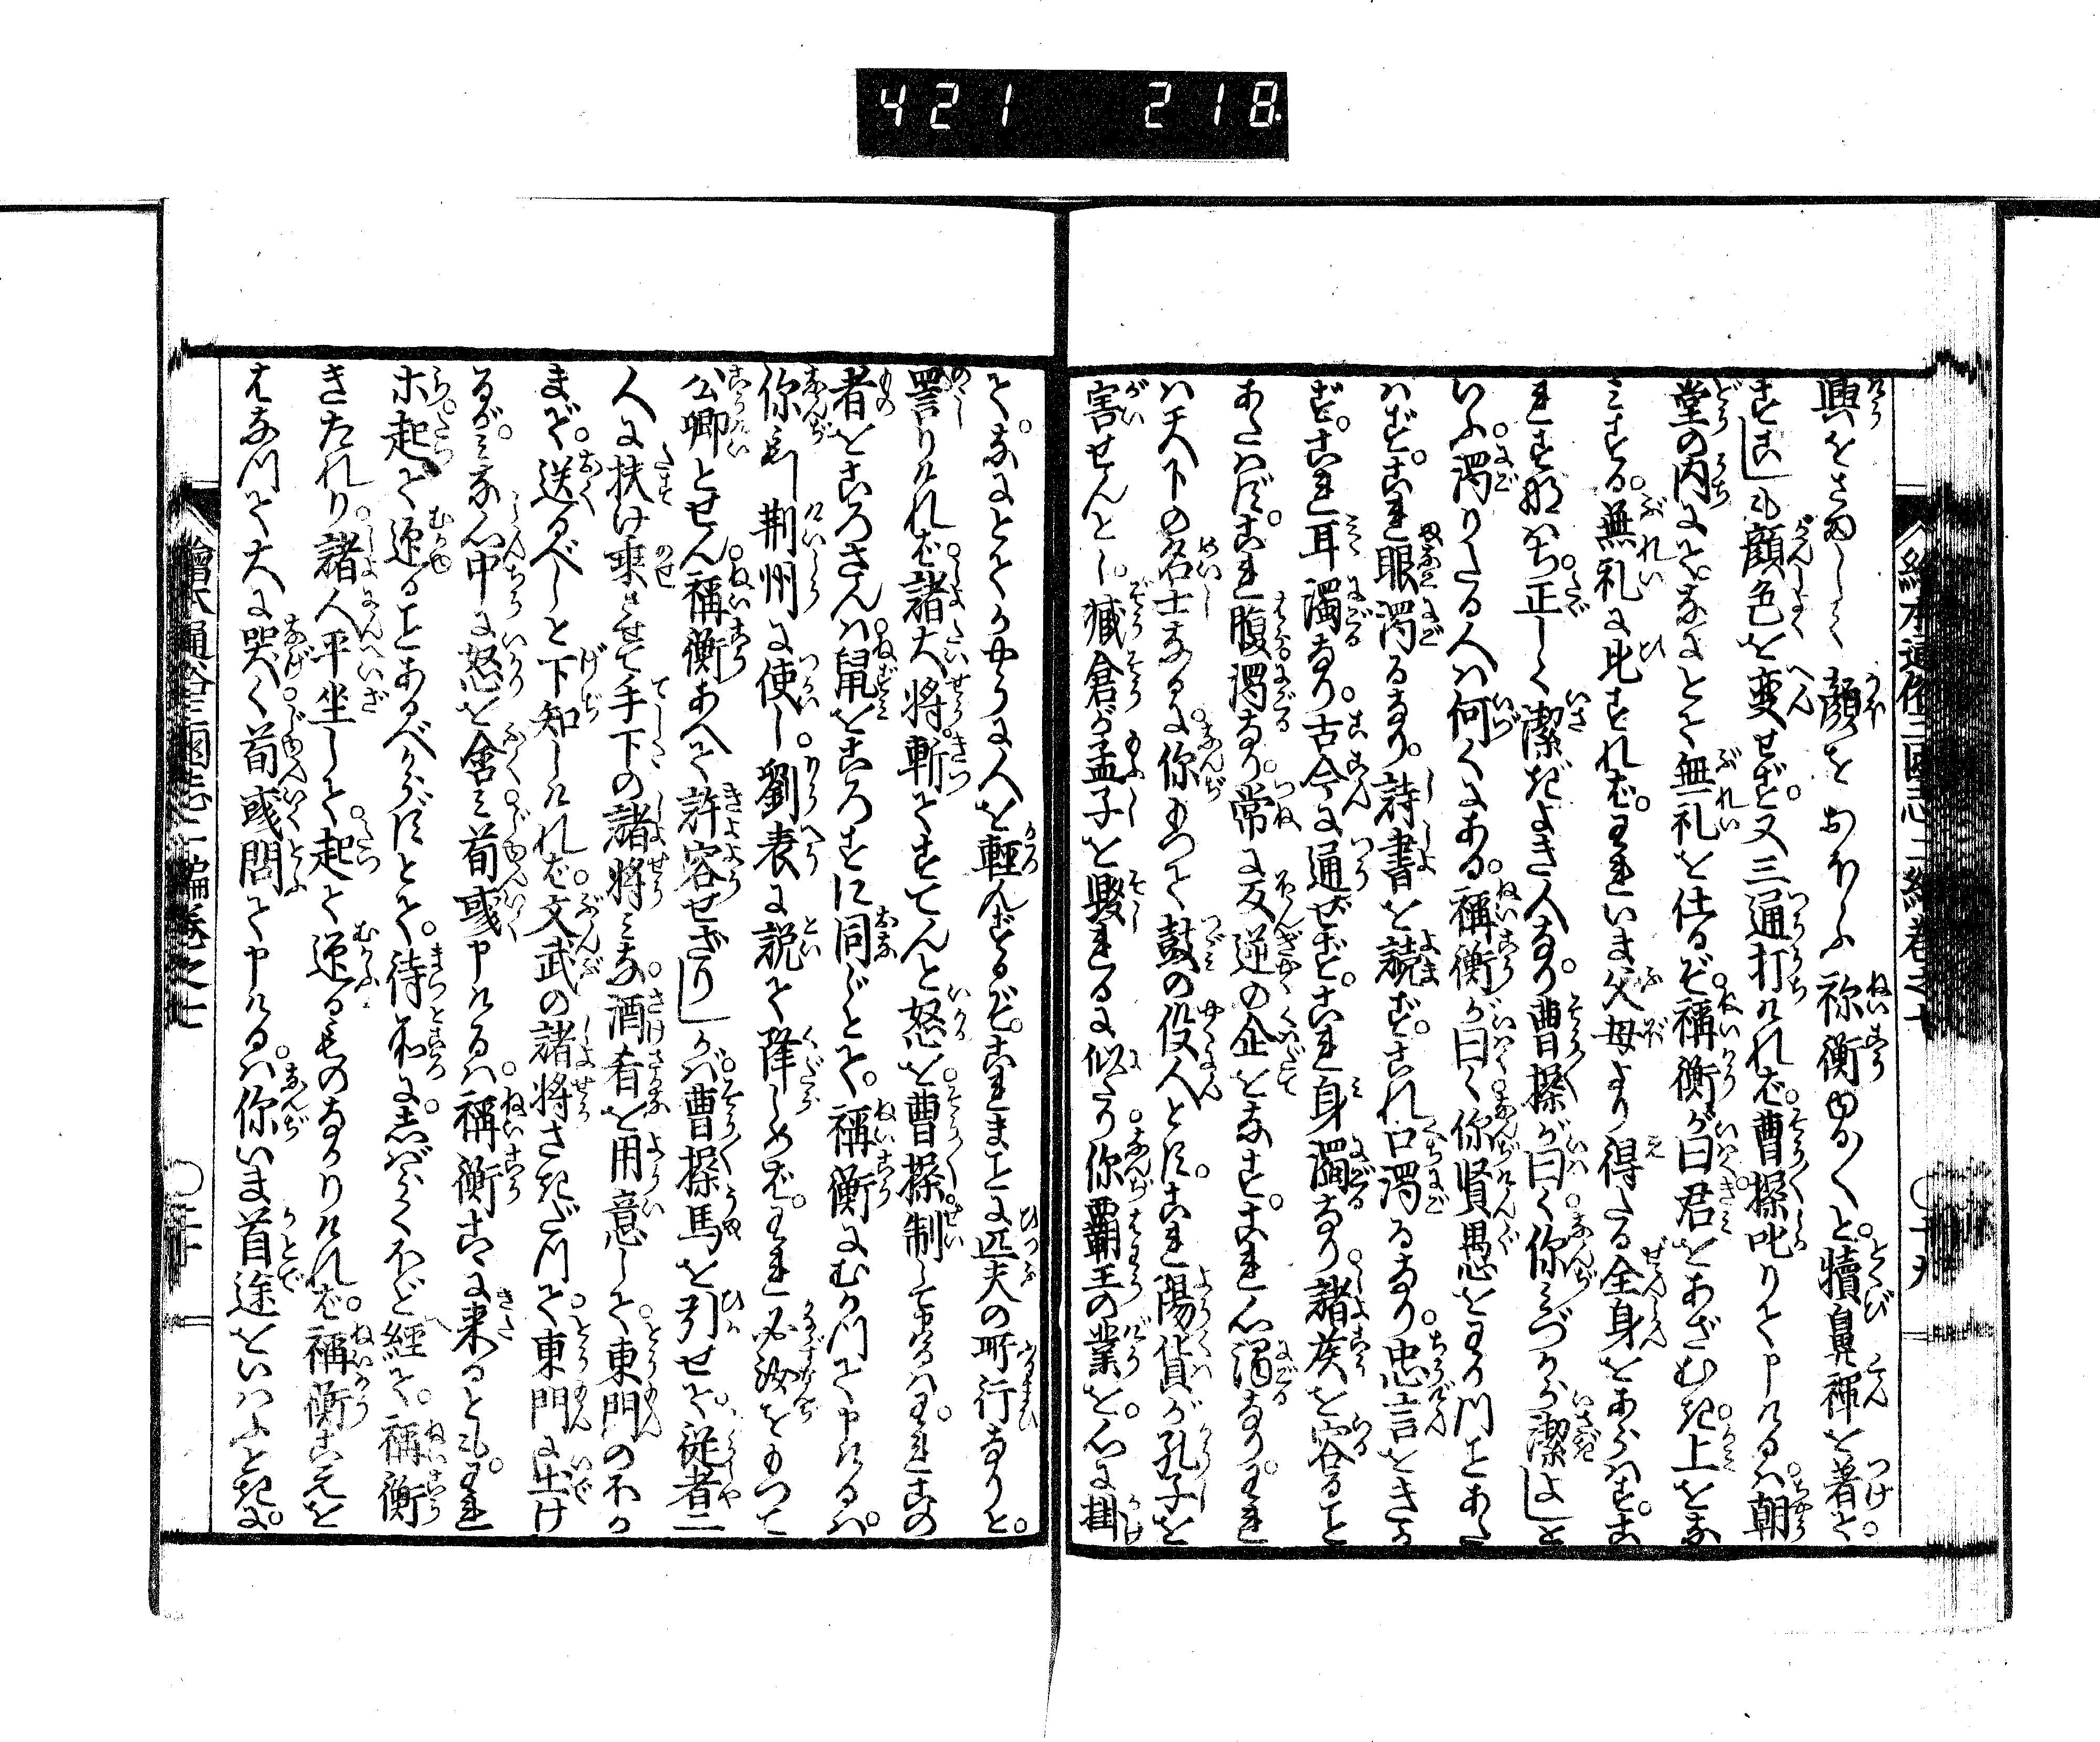 421 218.
興をさまして顔をおほふ祢衡ゆる〱と。犢鼻褌を着て。
すこしも顔色を変せず。又三通打けれバ。曹操叱りて申けるハ。朝
堂の内にて。なにとて無礼を仕るぞ。禰衡が曰君をあざむき。上をな
ミする。無礼に比すれバ。われいま父母より得たる全身をあらハす。こ
れすなハち。正しく潔きよき人なり。曹操が曰く。你ミづから潔よしと
いふ。濁りたる人ハ何くにある。禰衡が曰く。你賢愚をわかつことあた
ハず。これ眼濁るなり。詩書を読ず。これ口濁るなり。忠言をきか
ず。これ耳濁なり。古今に通ぜず。これ身濁なり。諸侯を容ること
あたハず。これ腹濁なり。常に反逆の企をなす。これ心濁なり。われ
ハ天下の名士なるに。你もつて鼓の役人とす。これ陽貨が孔子を
害せんとし。臧倉が孟子を毀れるに似たり。你覇王の業を。心に掛
て。なにとてかやうに人を軽んずるぞ。これまことに匹夫の所行なりと。
詈りけれバ。諸大将。斬てすてんと怒を。曹操。制して曰くハ。われこの
者をころさんハ。鼠をころすに同じとて。禰衡にむかつて申けるハ。
你我荊州に使し。劉表に説て降しめバ。われ必汝をもつて
公卿とせん。禰衡あへて許容せざりしかバ。曹操馬を引せて。従者二
人に扶け乗させて手下の諸将ミな。酒肴を用意して。東門の外
まで。送るべしと下知しけれバ。文武の諸将さきだつて。東門に出け
るが。ミな心中に怒を含ミ荀彧申けるハ。禰衡こゝに来るとも。われ
ら。起て迎ることあるべからずとて。待所に。しばらくほど経て。禰衡
きたれり。諸人平坐して。起て迎るものなかりけれバ。禰衡こえを
はなつて大に哭く荀彧問て申けるハ。你いま首途をいハふときに。
繪本通俗三國志二編巻之七 〇二十